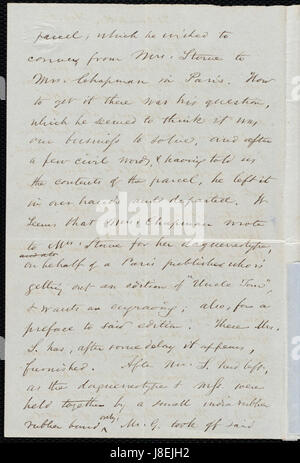 parcel, which he wished to
convey from Mrs. Stowe to
Mrs. Chapman in Paris. How
to get it there was his question,
which he seemed to think it was
our business to solve, and after
a few civil words, & having told us
the contents of the parcel, he left it
in our hands and departed. It
seems that Mrs. Chapman wrote
to Mrs. Stowe for her daguerreotype,
on behalf of a Paris publisher who is
getting out an edition of "Uncle Tom",
& wants an engraving; also, for a
preface to said edition. These Mrs.
S. has, after some delay it appears,
furnished. After Mr. S. had left,
as the daguerreotype & mss. were
held together by a small india rubber
rubber band only, Mr. G. took off said
a
alamy
J8EJH2